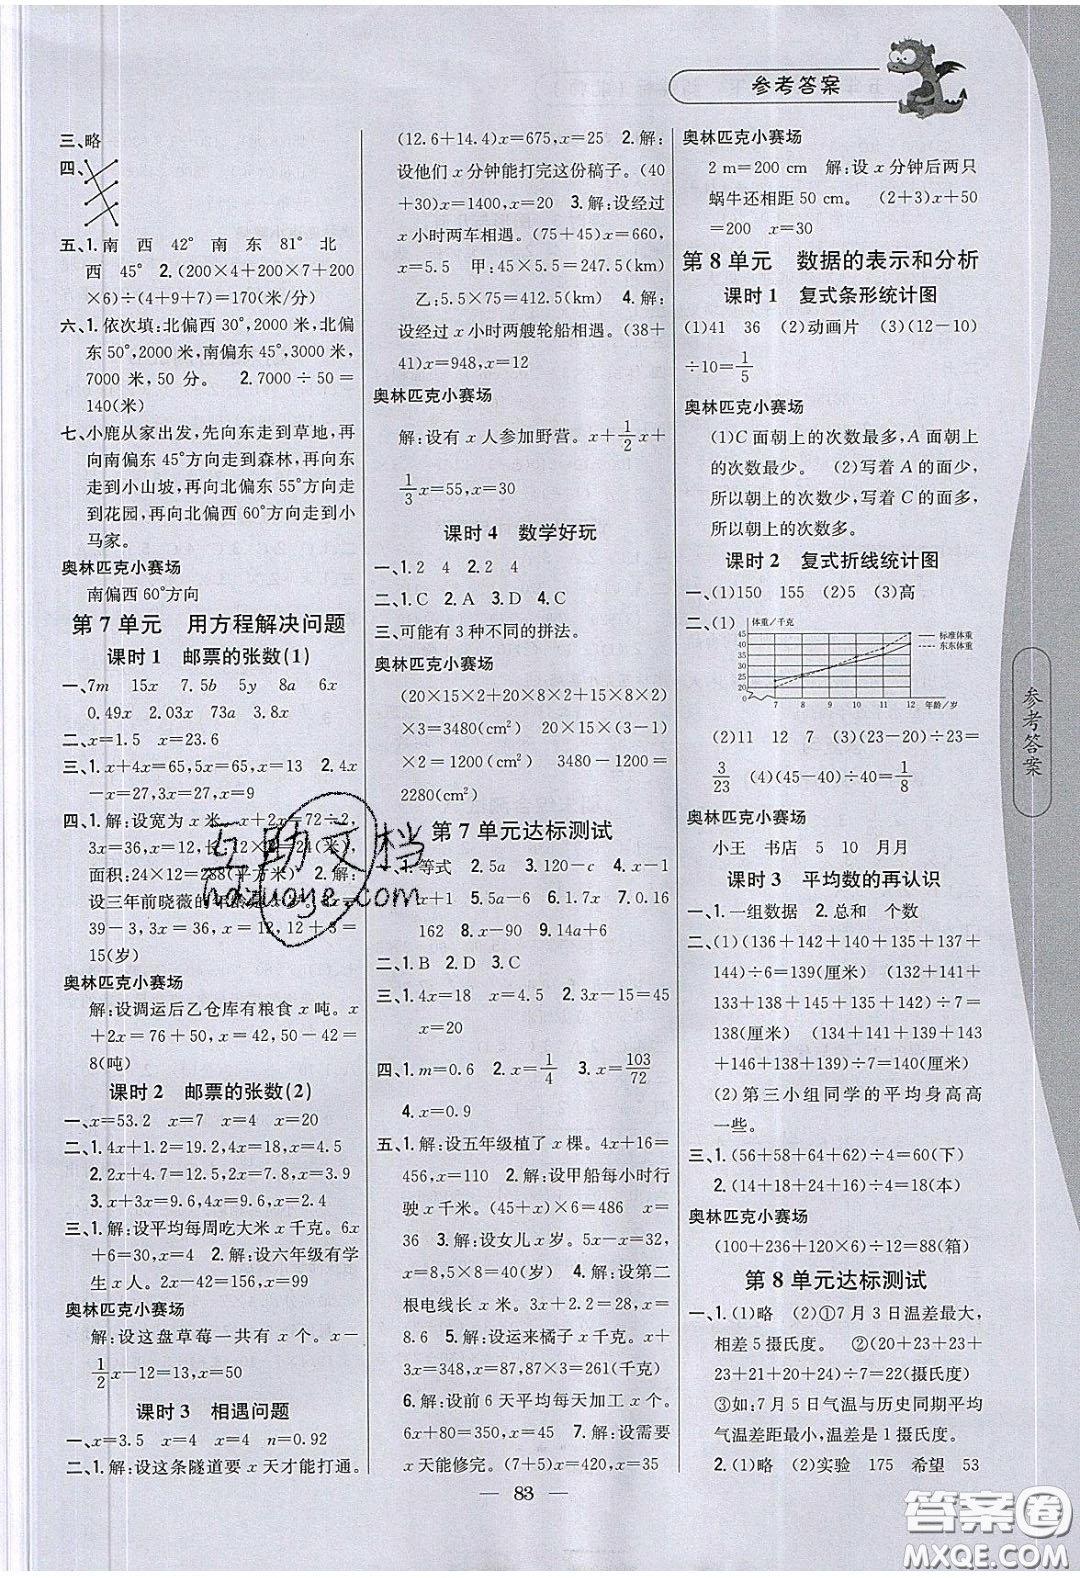 参考答案
三、略
四、
五、1.南 西 42° 南 东 81° 北
西 45° 2.(200+200×4+200
×6)÷(4+9+7)=170(米/分)
六、1.依次填:北偏西30°,2000米,北偏
东50°,2000米,南偏东45°,3000米,
7000米,50分。 2.7000÷50=
140(米)
七、小鹿从家出发,先向东走到草地,再
向南偏东45°方向走到森林,再向东
走到小山坡,再向北偏东55°方向走
到花园,再向北偏西60°方向走到小
马家。
奥林匹克小赛场
南偏西60°方向
第7单元 用方程解决问题
课时1 邮票的张数(1)
一、7m 15x 7.5b 5y 8a 6x
0.49x 73a 3.8x
二、x=1.5 x=23.6
三、1.x+4x=65,5x=65,x=13 2.4x
-x=27,3x=27,x=9
四、1.解:设宽为x米。x+2x=72÷2,
3x=36,x=12,长:12×2=24(米),
面积:24×12=288(平方米) 2.解:
39-3,3x=36,x=12,12+3=
15(岁)
奥林匹克小赛场
解:设调运后乙仓库有粮食x吨。x
+2x=76+50,x=42,50-42=
8(吨)
课时2 邮票的张数(2)
一、x=53.2 x=7 x=4 x=20
二、1.4x+1.2=19.2,4x=18,x=4.5
2.2x+4.7=12.5,2x=7.8,x=3.9
3.x+3x=9.6,4x=9.6,x=2.4
三、1.解:设平均每周吃大米x千克。6x
+6=30,x=4 2.解:设六年级有学
生x人。2x-42=156,x=99
奥林匹克小赛场
解:设这盘草莓一共有x个。x-
1/2x-12=13,x=50
课时3 相遇问题
一、x=3.5 x=4 n=0.92
二、1.解:设这条隧道要x天才能打通。
(12.6+14.4)x=675,x=25 2.解:
设他们x分钟能打完这份稿子。(40
+30)x=1400,x=20 3.解:设经过
x小时两车相遇。(75+45)x=660,
x=5.5 甲:45×5.5=247.5(千米)
乙:5.5×75=412.5(千米) 4.解:
设经过x小时两艘轮船相遇。(38+
41)x=948,x=12
奥林匹克小赛场
解:设有x人参加野营。x+1/2x+
1/3x=55,x=30
课时4 数学好玩
一、1.2 4 2.2 4
二、1.C 2.A 3.D 4.C
三、可能有3种不同的拼法。
奥林匹克小赛场
(20×15×2+20×8+15×8×2)
×3=3480(cm²) 20×15×(3-1)
×2=1200(cm²) 3480-1200=
2280(cm²)
第7单元达标测试
一、1.等式 2.5a 3.120-c 4.x-1
x+1 5.5a-6 6.1.7b 7.0.16
162 8.x-90 9.14a+6
二、1.B 2.D 3.C
三、1.4x=18 x=4.5 2.3x-15=45
x=20
四、1.m=0.6 2.x=1/4 3.x=103/72
4.x=0.9
五、1.解:设五年级植了x棵。4x+16=
456,x=110 2.解:设甲船每小时行
驶x千米。(x+45)×6=486 x=
36 3.解:设女儿x岁。5x-x=32,
4x=32,x=8 4.解:设第二
根电线长x米。3x-0.8=25,x=
8.6 5.解:设运来橘子x千克。x+
3x=348,x=87,87×3=261(千克)
6.解:设前6天平均每天加工x个。
6x+80=350,x=45 7.解:设需要
x天能修完。(7+5)x=420,x=35
奥林匹克小赛场
2m=200cm 解:设x分钟后两只
蜗牛还相距50厘米。(2+3)x+50
=200 x=30
第8单元 数据的表示和分析
课时1 复式条形统计图
(1)41 36 (2)动画片 (3)(12-10)
÷10=1/5
奥林匹克小赛场
(1)C面朝上的次数最多,A面朝上
的次数最少。 (2)写着A的面少,
所以朝上的次数少,写着C的面多,
所以朝上的次数多。
课时2 复式折线统计图
一、(1)150 155 (2)5 (3)高
二、(1)
体重/千克
45
40
35
30
25
20
0
7 8 9 10 11 12 年龄/岁
标准体重
东东体重
(2)11 12 7 (3)24÷(24+45)=
3/23 (4)(45-40)÷40=1/8
奥林匹克小赛场
小王 书店 5 10 月月
课时3 平均数的再认识
一、1.一组数据 2.总和 个数
二、(1)(136+142+140+135+137+
144)÷6=139(厘米) (132+141
+133+138+145+140+137)÷7=
138(厘米) (134+142+139+143
+146+138+138)÷7=140(厘米)
(2)第三小组同学的平均身高高
一些。
三、1.(56+58+64+62)÷4=60(下)
2.(14+16+18+24)÷4=18(本)
奥林匹克小赛场
(100+236+120×6)÷12=88(箱)
第8单元达标测试
一、1.(1)略 (2)①7月3日温差最大,
相差5摄氏度。 ②(20+23+23+
23+21+20+24)÷7=22(摄氏度)
③如:7月5日气温与历史同期平均
气温差距最大。
2.(1)略 (2)实验 175 希望 53
参考答案
83
互助文档
hdzuoye.com
答案圈
MXQE.COM